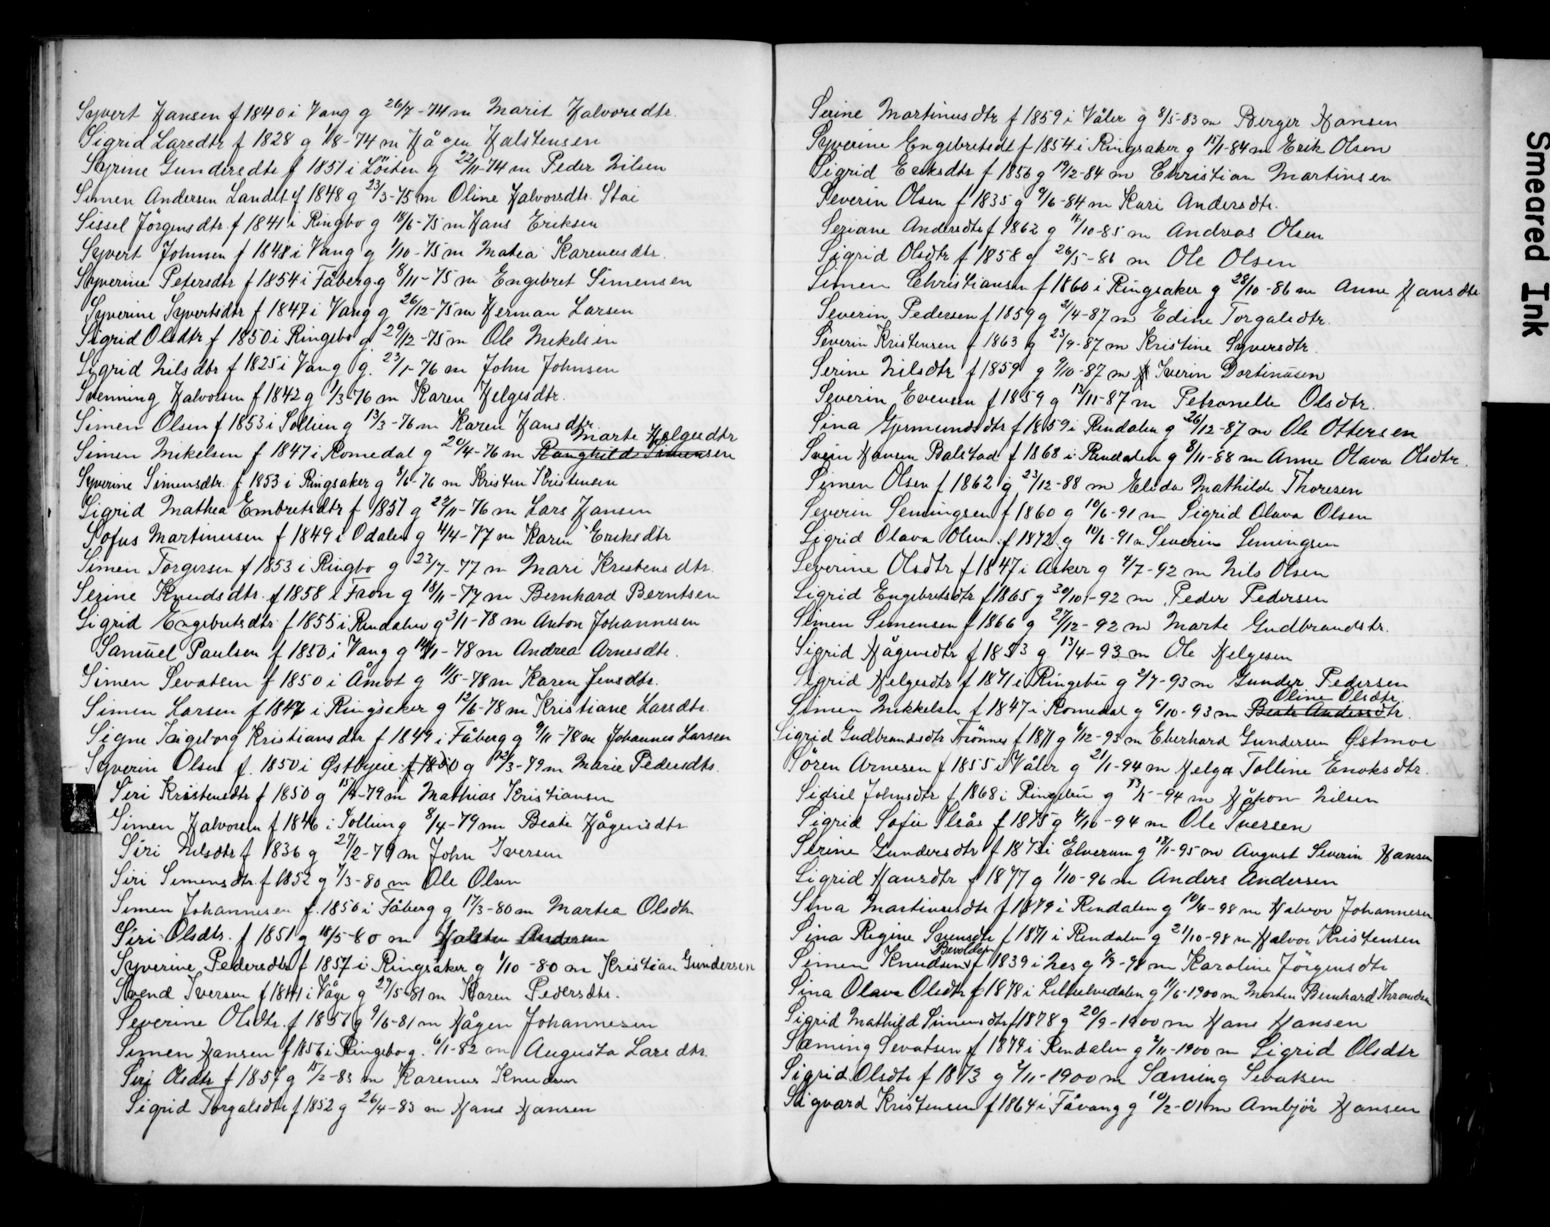 Syvert Hansen f 1840 i Vang g 26/7-74 m Marit Halvorsdtr.
Sigrid Larsdtr f 1828 g 1/8-74 m Hågen Halstensen
Syrine Gundersdtr f 1851 i Löiten g 22/11-74 m Peder Nilsen
Simen Andersen Landet f 1848 g 23/3-75 m Oline Halvorsdtr. Stai
Sissel Jörgensdtr. f 1841 i Ringbo g 18/6-75 m Hans Eriksen
Syvert Johnsen f 1848 i Vang g 1/10-75 m Matea Karenusdtr.
Syverine Petersdtr f 1854 i Fåberg g 8/11-75 m Engebret Simensen
Syverine Syvertsdtr f 1847 i Vang g 26/12-75 m Herman Larsen
Sigrid Olsdtr f 1850 i Ringsbo g 29/12-75 m Ole Mikelsen
Sigrid Nilsdtr f 1825 i Vang g. 23/1-76 m John Johnsen
Svenning Halvorsen f 1842 g 1/3-76 m Karen Helgesdtr.
Simen Olsen f 1853 i Sollien g 13/3-76 m Karen Hansdtr.
Marte Helgesdtr
Simen Mikelsen f 1847 i Romedal g 20/4-76 m Ranghild Simensen
Syverine Simensdtr. f 1853 i Ringsaker g 8/6-76 m Kristen Kristensen
Sigrid Mathea Embretsdtr f 1857 g 24/11-76 m Lars Hansen
Sofus Martinusen f 1849 i Odalen g 4/4-77 m Karen Eriksdtr
Simen Torgersen f 1853 i Ringbo g 23/7-77 m Mari Kristensdtr.
Serine Knudsdtr. f 1858 i Fron g 18/11-77 m Bernhard Berntsen
Sigrid Engebretsdtr f 1855 i Rendalen g 3/11-78 m Anton Johannesen
Samuel Paulsen f 1850 i Vang g 14/1-78 m Andrea Arnesdtr.
Simen Sevatsen f 1850 i Åmot g 11/5-78 m Karen Jensdtr.
Simen Larsen f 1847 i Ringsaker g 12/6-78 m Kristiane Larsdtr.
Signe Ingeborg Kristiansdtr f 1849 i Fåberg g 9/11-78 m Johannes Larsen
Syverin Olsen f. 1850 i Østbyeie f 1850 g 12/3-79 m Marie Pedersdtr.
Siri Kristensdtr f 1850 g 15/4-79 m Mathias Kristiansen
Simen Halvorsen f 1846 i Solliung 8/4-79 m Beate Hågensdtr
Siri Nilsdtr f 1836 g 27/2-79 m John Iversen
Siri Simensdtr f 1852 g 7/3-80 m Ole Olsen
Simen Johannesen f. 1850 i Fåberg g 17/3-80 m Martea Olsdtr
Siri Olsdtr. f 1851 g 18/5-80 m Halsten Andersen
Syverine Pedersdtr f 1857 i Ringsaker g 1/10-80 m Kristian Gundersen
Svend Iversen f 1841 i Våge g 27/5-81 m Karen Pedersdtr.
Severine Olsdtr. f 1857 g 9/6-81 m Hågen Johannesen
Simen Hansen f 1856 i Ringebo g. 6/1-82 m Augusta Larsdtr.
Siri Olsdtr f 1857 g 17/2-83 m Karenus Knudsen
Sigrid Torgalsdtr f 1852 g 26/4-83 m Hans Hansen
Serine Martinusdtr f 1859 i Våler g 8/5-83 m Berger Hansen
Syverine Engebretsdtr f 1854 i Ringsaker g 15/11-84 m Erik Olsen
Sigrid Eriksdtr f 1856 g 19/2-84 m Christian Martinsen
Severin Olsen f 1835 g 9/6-84 m Kari Andersdtr.
Seriane Andersdtr f 1862 g 11/10-85 m Andreas Olsen
Sigrid Olsdtr f 1858 g 26/5-86 m Ole Olsen
Simen Christiansen f 1860 i Ringsaker g 28/10-86 m Anne Hansdtr
Severin Pedersen f 1859 g 2/4-87 m Edine Torgalsdtr.
Severin Kristensen f 1863 g 23/9-87 m Kristine Syversdtr.
Serine Nilsdtr f 1859 g 9/10-87 m Iverin Dortinusen
Severin Evensen f 1859 g 12/11-87 m Petronelle Olsdtr.
Sina Gjermundsdtr f 1859 i Rendalen g 26/12-87 m Ole Ottersen
Svein Hansen Balstad f 1868 i Rendalen g 8/11-88 m Anne Olava Olsdtr.
Simen Olsen f 1862 g 23/12-88 m Elida Mathilde Thoresen
Severin Semingsen f 1860 g 10/6-91 m Sigrid Olava Olsen
Sigrid Olava Olsen f 1872 g 10/6-91 m Severin Semingsen
Severine Olsdtr f 1847 i Asker g 4/7-92 m Nils Olsen
Sigrid Engebretsdtr f 1865 g 30/10-92 m Peder Pedersen
Simen Simensen f 1866 g 27/12-92 m Marte Gudbrandsdtr.
Sigrid Hågensdtr f 1853 g 13/4-93 m Ole Helgesen
Sigrid Helgesdtr f 1871 i Ringebu g 2/7-93 m Gunder Pedersen
Oline Olsdtr
Simen Mikkelsen f 1847 i Romedal g 6/10-93 m Beate Andersdtr.
Sigrid Gudbrandsdtr Trønnes f 1871 g 6/12-93 m Eberhard Gundersen Østmoe
Sören Arnesen f 1855 i Våler g 21/1-94 m Helga Tolline Enoksdtr.
Sidsil Johnsdtr f 1868 i Ringebu g -94 m Håkon Nilsen
Sigrid Sofie Ilsås f 1875 g 4/10-94 m Ole Iversen
Serine Gundersdtr f 1873 i Elverum g 18/1-95 m August Severin Hansen
Sigrid Hansdtr f 1877 g 1/10-96 m Anders Andersen
Sina Martinusdtr f 1879 i Rendalen g 10/4-98 m Halvor Johannesen
Sina Regine Svensdtr f 1871 i Rendalen g 21/10-98 m Halvor Kristensen
Simen Knudsen f 1839 i Nes g 9/9-98 m Karoline Jörgensdtr
Sina Olava Olsdtr f 1878 i Lilleelvedalen g 11/6-1900 m Morten Bernhard Thronsen
Sigrid Mathild Simensdtr f 1878 g 20/9-1900 m Hans Hansen
Sæming Sevatsen f 1874 i Rendalen g 2/11-1900 m Sigrid Olsdtr
Sigrid Olsdtr f 1873 g 2/11-1900 m Sæming Sevatsen
Sigvard Kristensen f 1864 i Fåvang g 10/2-01 m Ambjör Hansen
Smeared Ink